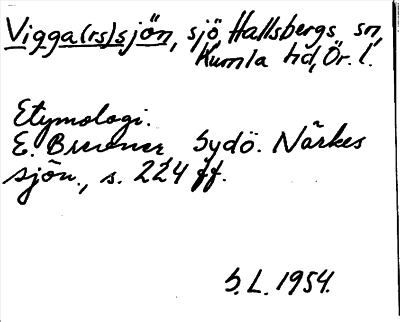 Vigga(rs)sjön, sjö, Hallsbergs sn,
Kumla hd, Ör. l.
Etymologi.
E. Brenner, Sydö. Närkes
sjön., s. 224 ff.
S. L. 1954.